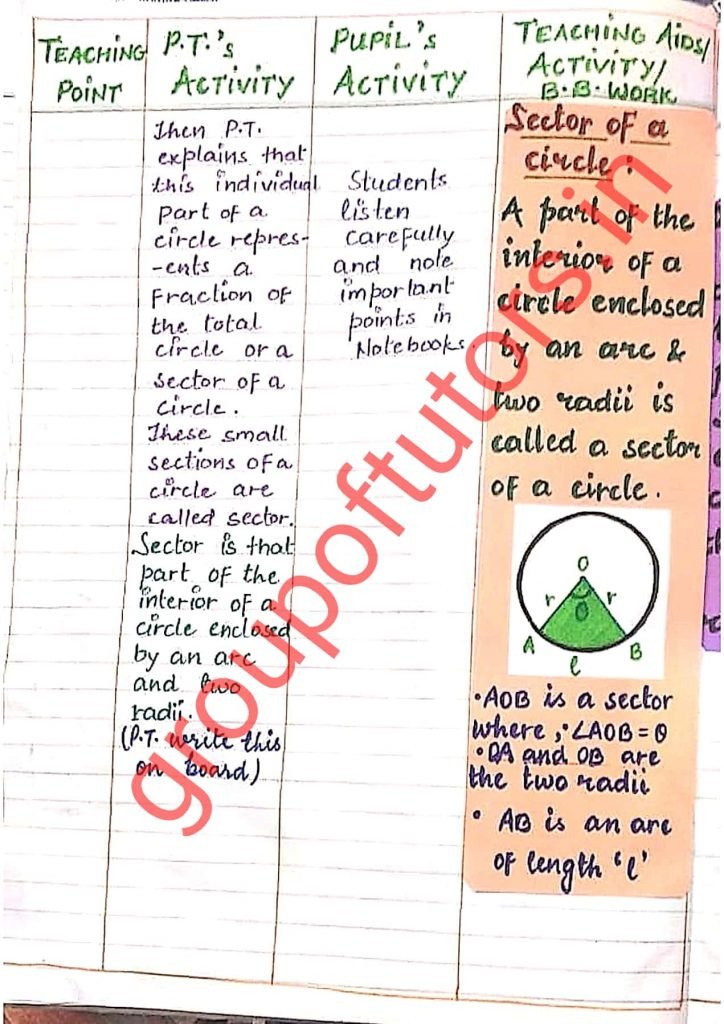 TEACHING
POINT
P.T.'s
ACTIVITY
PUPIL's
ACTIVITY
TEACHING AIDS/
ACTIVITY/
B.B. WORK
Then P.T.
explains that
this individual
part of a
circle repres-
-ents a
Fraction of
the total
circle or a
sector of a
circle.
These small
sections of a
circle are
called sector.
Sector is that
part of the
interior of a
circle enclosed
by an arc
and two
radii.
(P.T. write this
on board)
Students
listen
carefully
and note
important
points in
Notebooks.
Sector of a
circle :
A part of the
interior of a
circle enclosed
by an arc &
two radii is
called a sector
of a circle.
O
r θ r
A B
l
• AOB is a sector
where, • ∠AOB = θ
• OA and OB are
the two radii
• AB is an arc
of length 'l'
groupoftutors.in